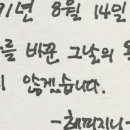 91년 8월 14일
를 바꾼 그날의 용
지 않겠습니다.
-해피지나-